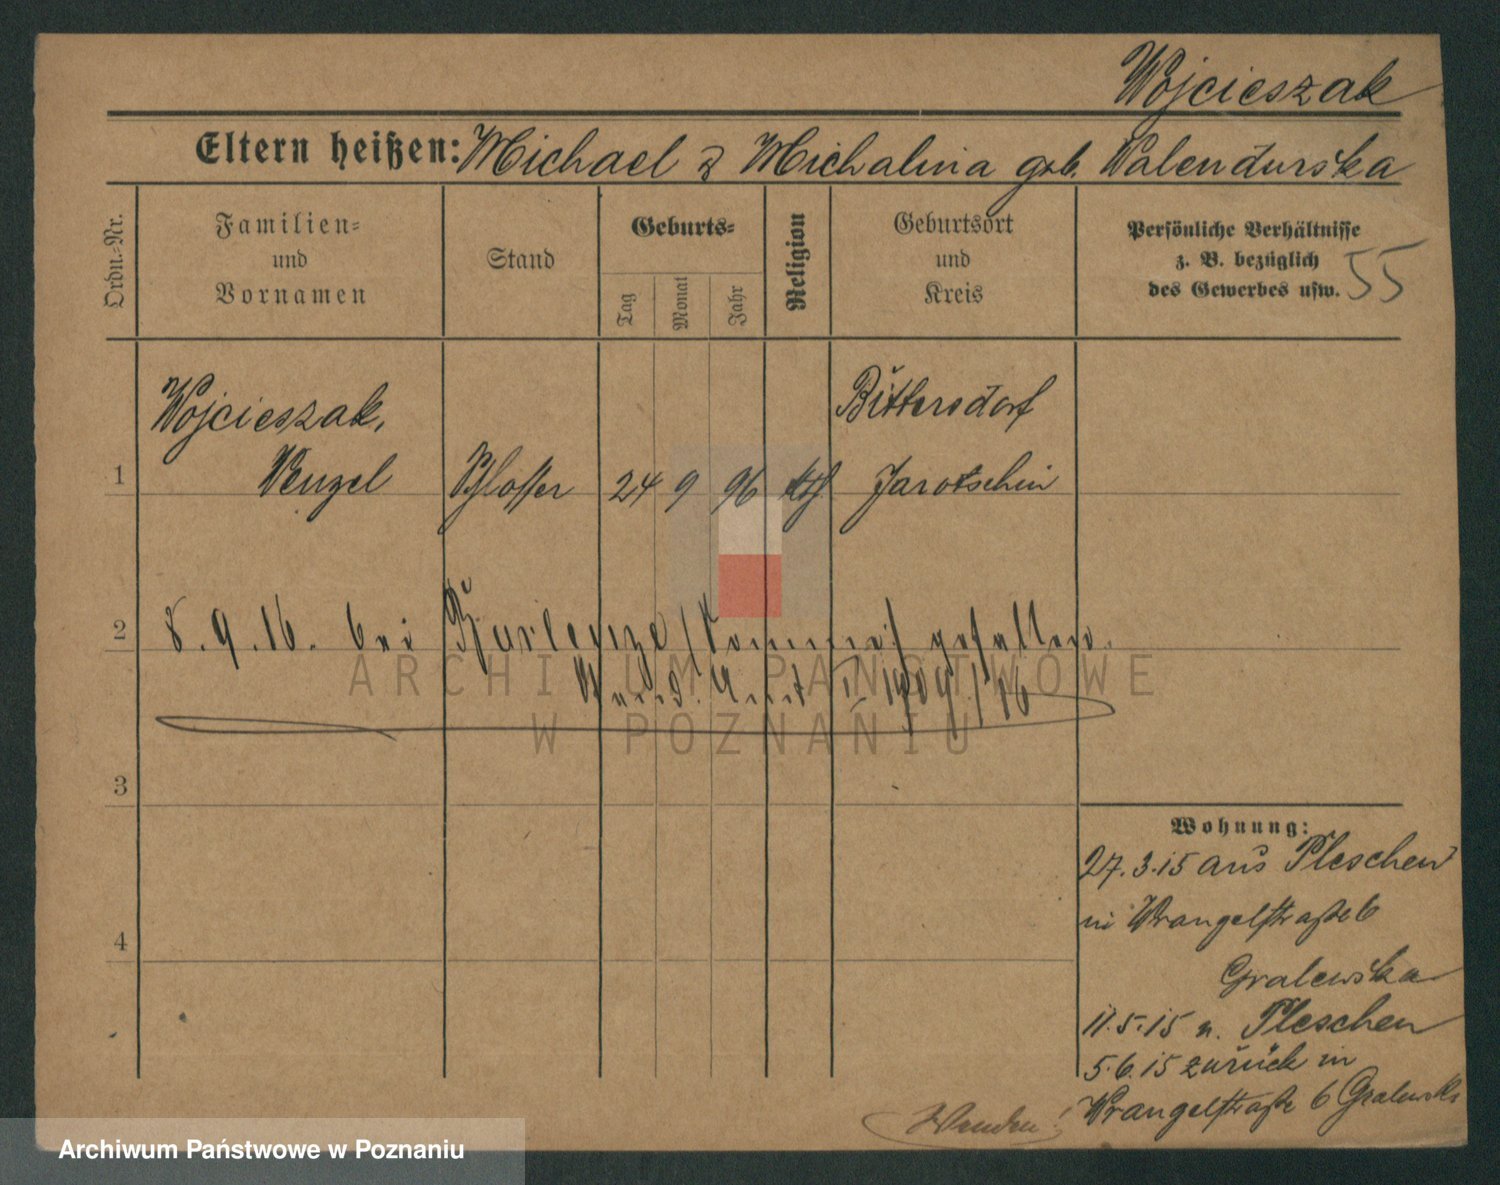 Wojcieszak
Eltern heißen: Michael & Michalina geb. Walendurska
Ordn.-Nr.
Familien-
und
Vornamen
Stand
Geburts-
Tag
Monat
Jahr
Religion
Geburtsort
und
Kreis
Persönliche Verhältnisse
z. B. bezüglich
des Gewerbes usw.
55
Wojcieszak,
Bittersdorf
1 Wenzel Schlosser 24 9 96 kth Jarotschin
2 8. 9. 16. bei /Somme/ gefallen.
Stand. Amt II 1909/16
ARCHIWUM PAŃSTWOWE
W POZNANIU
3
Wohnung:
27.3.15 aus Pleschen
in Wrangelstraße 6
4
Gralewska
11.5.15 n. Pleschen
5.6.15 zurück in
Wrangelstraße 6 Gralewska
Wenden!
Archiwum Państwowe w Poznaniu